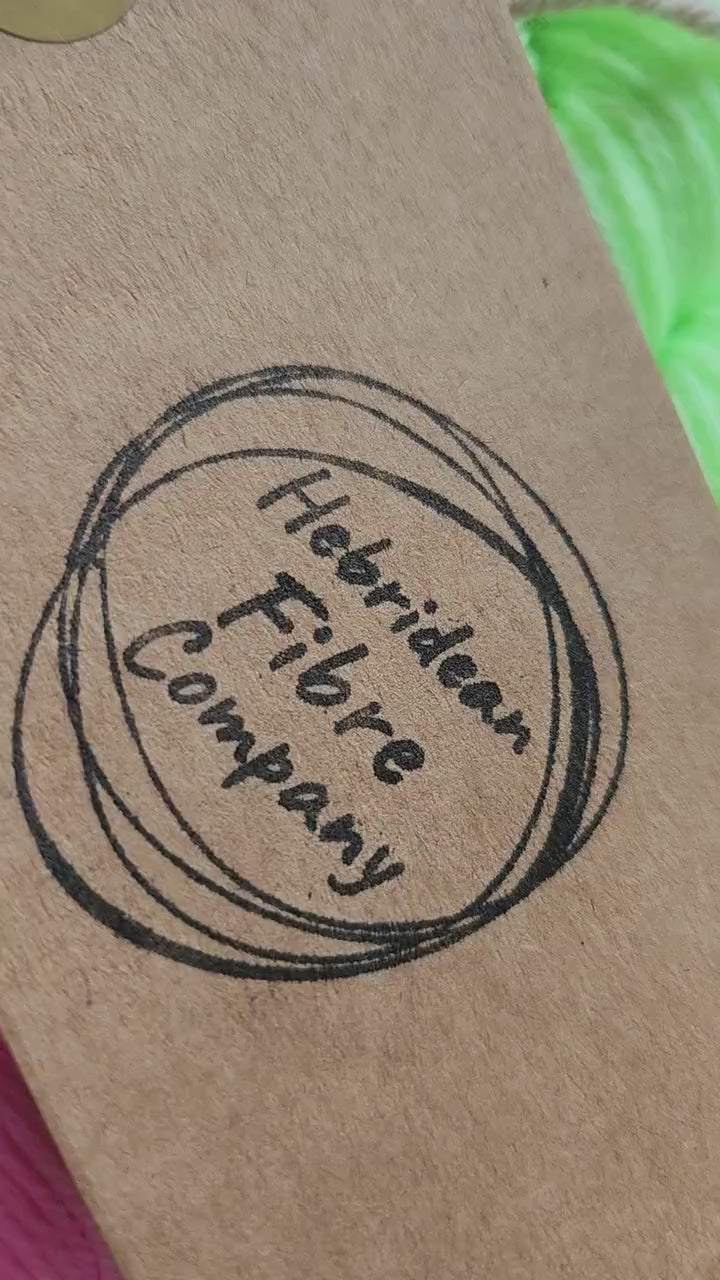 Hebridean
Fibre
Company